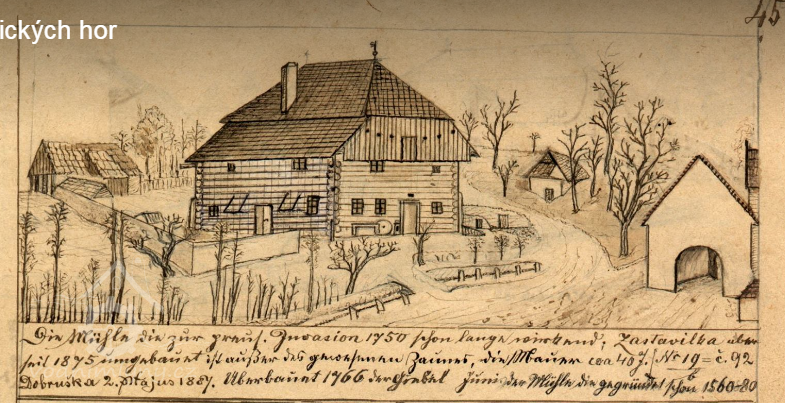 ických hor
45
Die Mühle die zur preuß. Invasion 1750 schon lange wirkend; Zastavilka aber
seit 1875 umgebauet ist außer des gewesenen Zaunes, die Mauer cca 40 J. Nr 19 = č. 92
Dobruška 2. Majus 1887. Überbauet 1766 der Giebel der Mühle die gegründet schon 1560-80